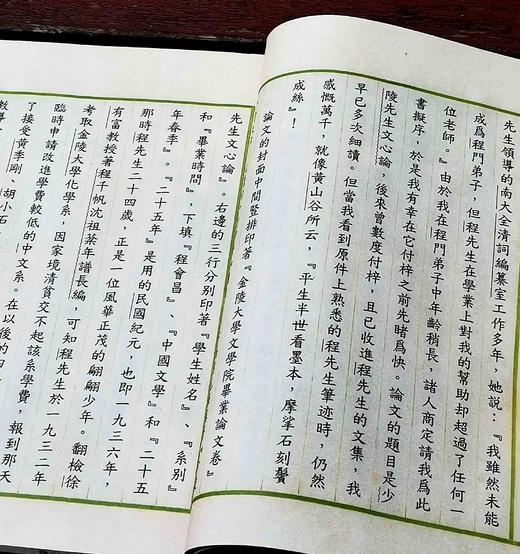 先生領導的南大全清詞編纂室工作多年，她說：『我雖然未能
成爲程門弟子，但程先生在學業上對我的幫助却超過了任何一
位老師。』由於我在程門弟子中年齡稍長，諸人商定請我爲此
書擬序，於是我有幸在它付梓之前先睹爲快。論文的題目是少
陵先生文心論，後來曾數度付梓，且已收進程先生的文集，我
早已多次細讀。但當我看到原件上熟悉的程先生筆迹時，仍然
感慨萬千，就像黃山谷所云，『平生半世看墨本，摩挲石刻鬢
成絲』！
論文的封面中間豎排印著『金陵大學文學院畢業論文卷』
和『畢業時間』，下填『程會昌』、『中國文學』和『二十五
先生文心論』。右邊的三行分別印著『學生姓名』、『系別』
年春季』。『二十五年』是用的民國紀元，也即一九三六年，
那時程先生二十四歲，正是一位風華正茂的翩翩少年。翻檢徐
有富教授著程千帆沈祖棻年譜長編，可知程先生於一九三二年
考取金陵大學化學系，因家境清貧交不起該系學費，報到那天
臨時申請改進學費較低的中文系。在以後的四
了接受黃季剛、胡小石